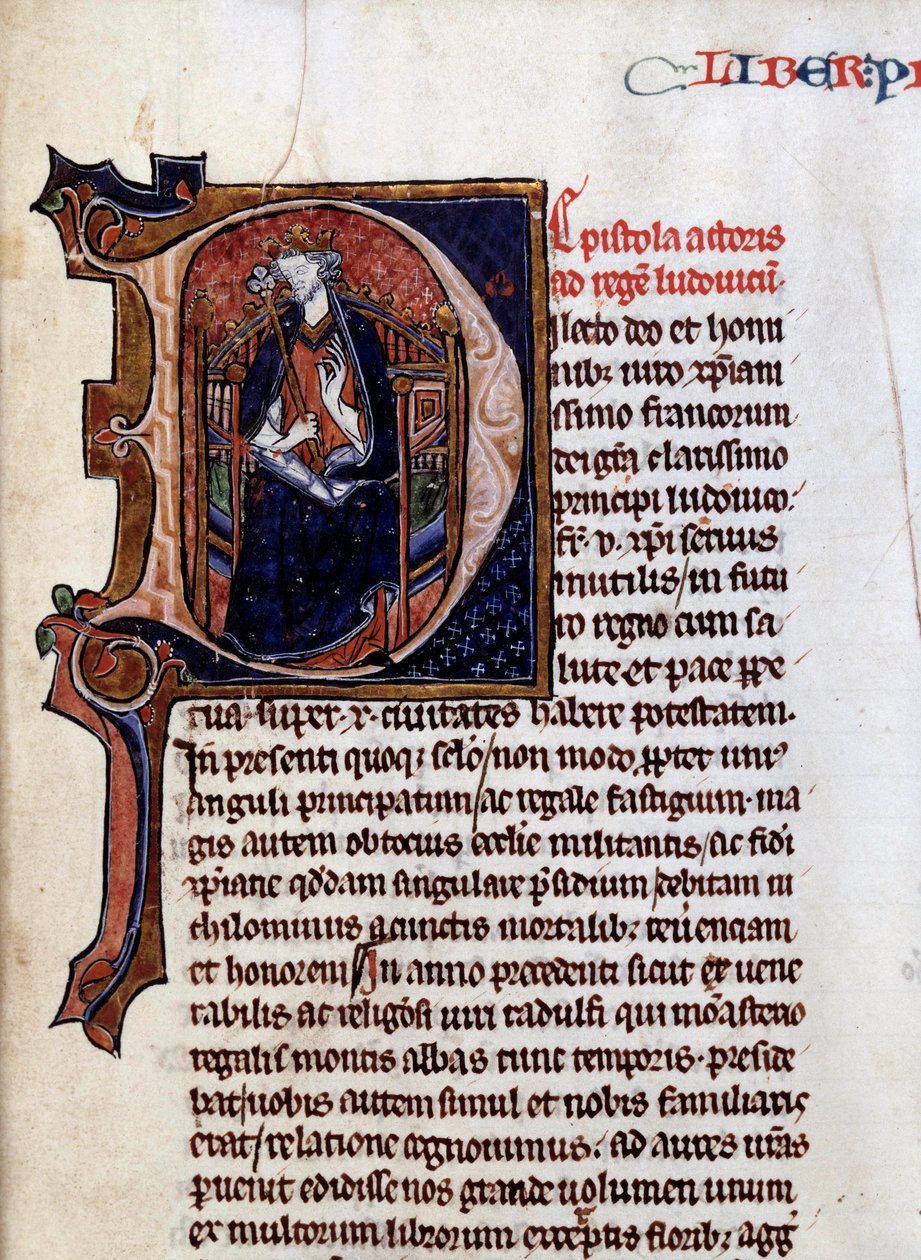 LIBER : P
Epistola actoris
ad regē ludouicū.
Dilecto deo et homi
nibꝫ uiro xp̄iani
ssimo francorum
dei gr̄a clarissimo
principi ludouico.
fr̄. v. xp̄i seruus
inutilis / in futu
ro regno cum sa
lute et pace ꝑpe
tua. super .x. ciuitates habere potestatem.
In presenti quoqꝫ sc̄lo / non modo ꝓpter uniꝰ
anguli principatum / ac regale fastigium. ma
gis autem ob tocius eccl̄ie militantis / ac fidei
xp̄iane qđdam singulare p̄sidium / debitam in
chi lominus a cunctis mortalibꝫ reuerenciam
et honorem. In anno precedenti sicut ex uene
rabilis ac religiosi uiri radulfi qui mōasterio
regalis montis abbas tunc temporis. preside
bat / uobis autem simul et nobis familiaris
erat / relatione cognouimus. ad aures ur̄as
ꝑuenit edidisse nos grande uolumen unum
ex multorum librorum exceptis floribꝫ agg̃